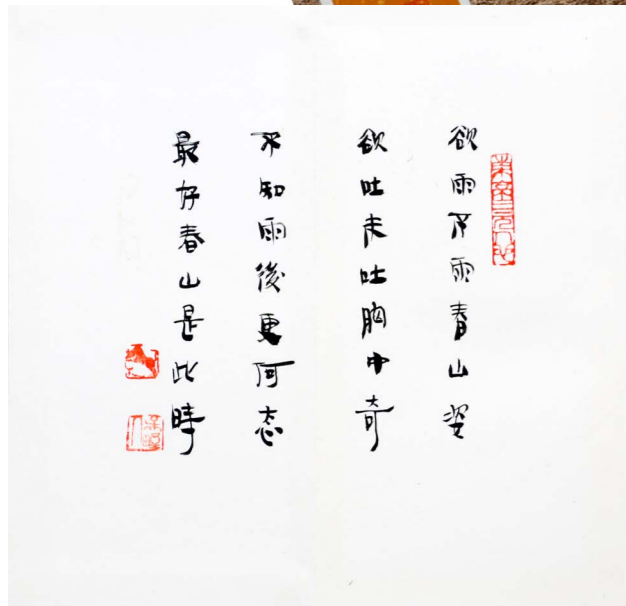 欲雨不雨春山姿
欲吐未吐胸中奇
不知雨後更何态
最好春山是此時